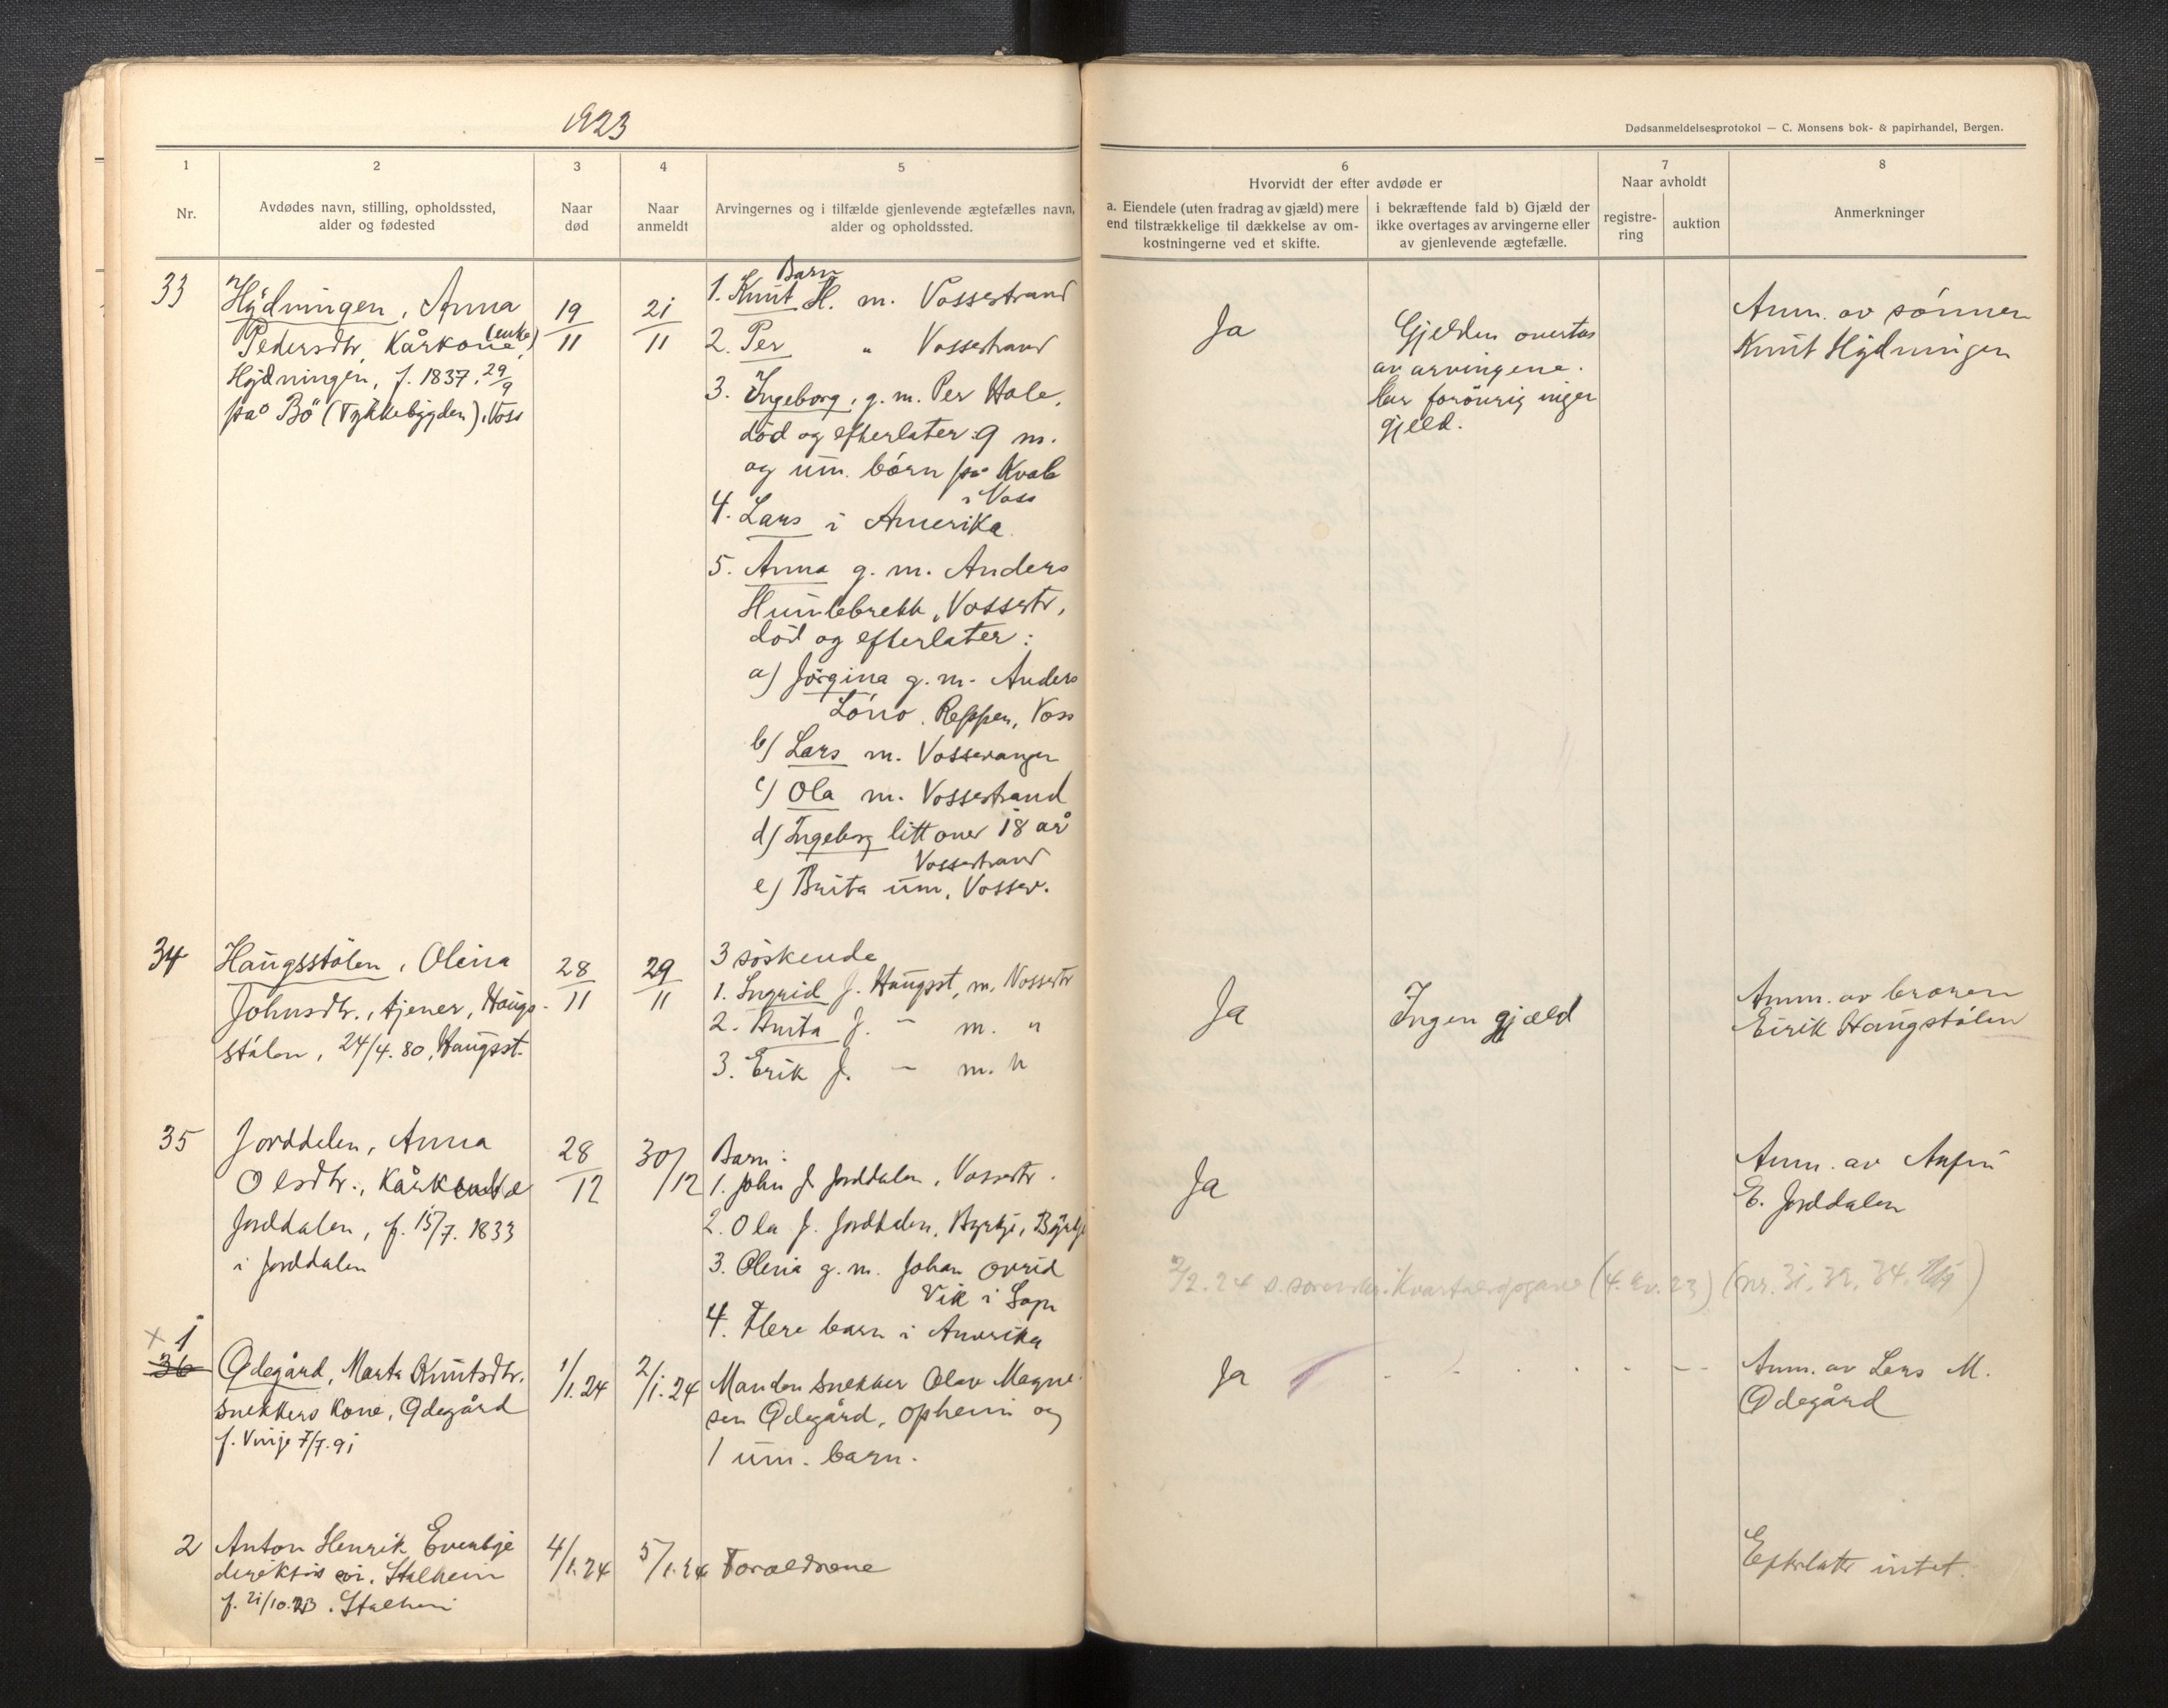 1923
Dødsanmeldelsesprotokol — C. Monsens bok- & papirhandel, Bergen.
1
2
3
4
5
6
7
8
Nr.
Avdødes navn, stilling, opholdssted,
alder og fødested
Naar
død
Naar
anmeldt
Arvingernes og i tilfælde gjenlevende ægtefælles navn,
alder og opholdssted.
Hvorvidt der efter avdøde er
a. Eiendele (uten fradrag av gjæld) mere
end tilstrækkelige til dækkelse av om-
kostningerne ved et skifte.
i bekræftende fald b) Gjæld der
ikke overtages av arvingerne eller
av gjenlevende ægtefælle.
Naar avholdt
registre-
ring
auktion
Anmerkninger
33
Hÿdningen, Anna
Pedersdtr, Kårkone (enke)
Hÿdningen, f. 1837. 29/9
på Bö (Tÿkkebÿgden), Voss
19/11
21/11
Barn
1. Knut H. m. Vossestrand
2. Per " Vossestrand
3. Ingeborg, g. m. Per Hole,
död og efterlater 9 m.
og um. börn på Kvale
i Voss
4. Lars i Amerika
5. Anna g. m. Anders
Humlebrekk, Vossestr,
död og efterlater:
a) Jörgina g. m. Anders
Lóno. Reppen, Voss
b) Lars m. Vossevangen
c) Ola m. Vossestrand
d) Ingeborg litt over 18 år
Vossestrand
e) Brita um, Vossev.
Ja
Gjelden overtas
av arvingene.
Har forövrig ingen
gjeld.
Anm. av sónnen
Knut Hÿdningen
34
Haugsstólen, Olina
Johnsdtr., tjener, Haugs-
stólen, 24/4. 80, Haugsst.
28/11
29/11
3 söskende
1. Ingrid J. Haugsst, m. Vossestr
2. Brita J. — m. "
3. Erik J. — m. "
Ja
Ingen gjæld
Anm. av broren
Eirik Haugstólen
35
Jorddalen, Anna
Olsdtr.,
Jorddalen, f. 15/7. 1833
i Jorddalen
28/12
30/12
Barn:
1. John J. Jorddalen, Vossestr.
2. Ola J. Jorddalen,
3. Olina g. m. Johan
Vik i Sogn
4. Flere barn i Amerika
Ja
Anm. av Anfin
E. Jorddalen
2/2.24 (4. kv. 23) (nr. 31. 32. 34. )
x 1
36
Ødegård, Marta Knutsdtr.
snekkers kone, Ødegård
f. Vinje 7/7. 91
1/1.24
2/1.24
Manden snekker Olav Magne-
sen Ødegård, Opheim og
1 um. barn.
Ja
Anm. av Lars M.
Ødegård
2
Anton Henrik
Stalheim
f. 21/10.23. Stalheim
4/1.24
5/1.24
Foreldrene
Efterlater intet.